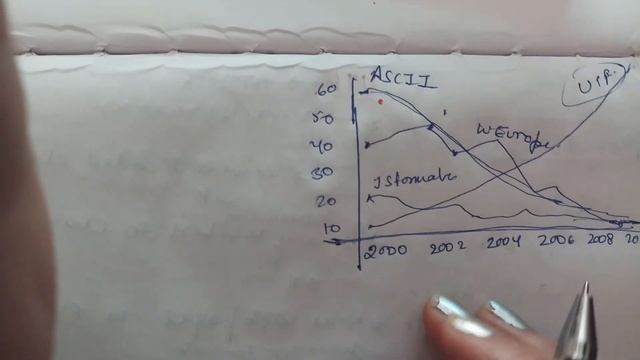 ASCII
UTF
60
50
40
W Europe
30
20
10
2000 2002 2004 2006 2008 20